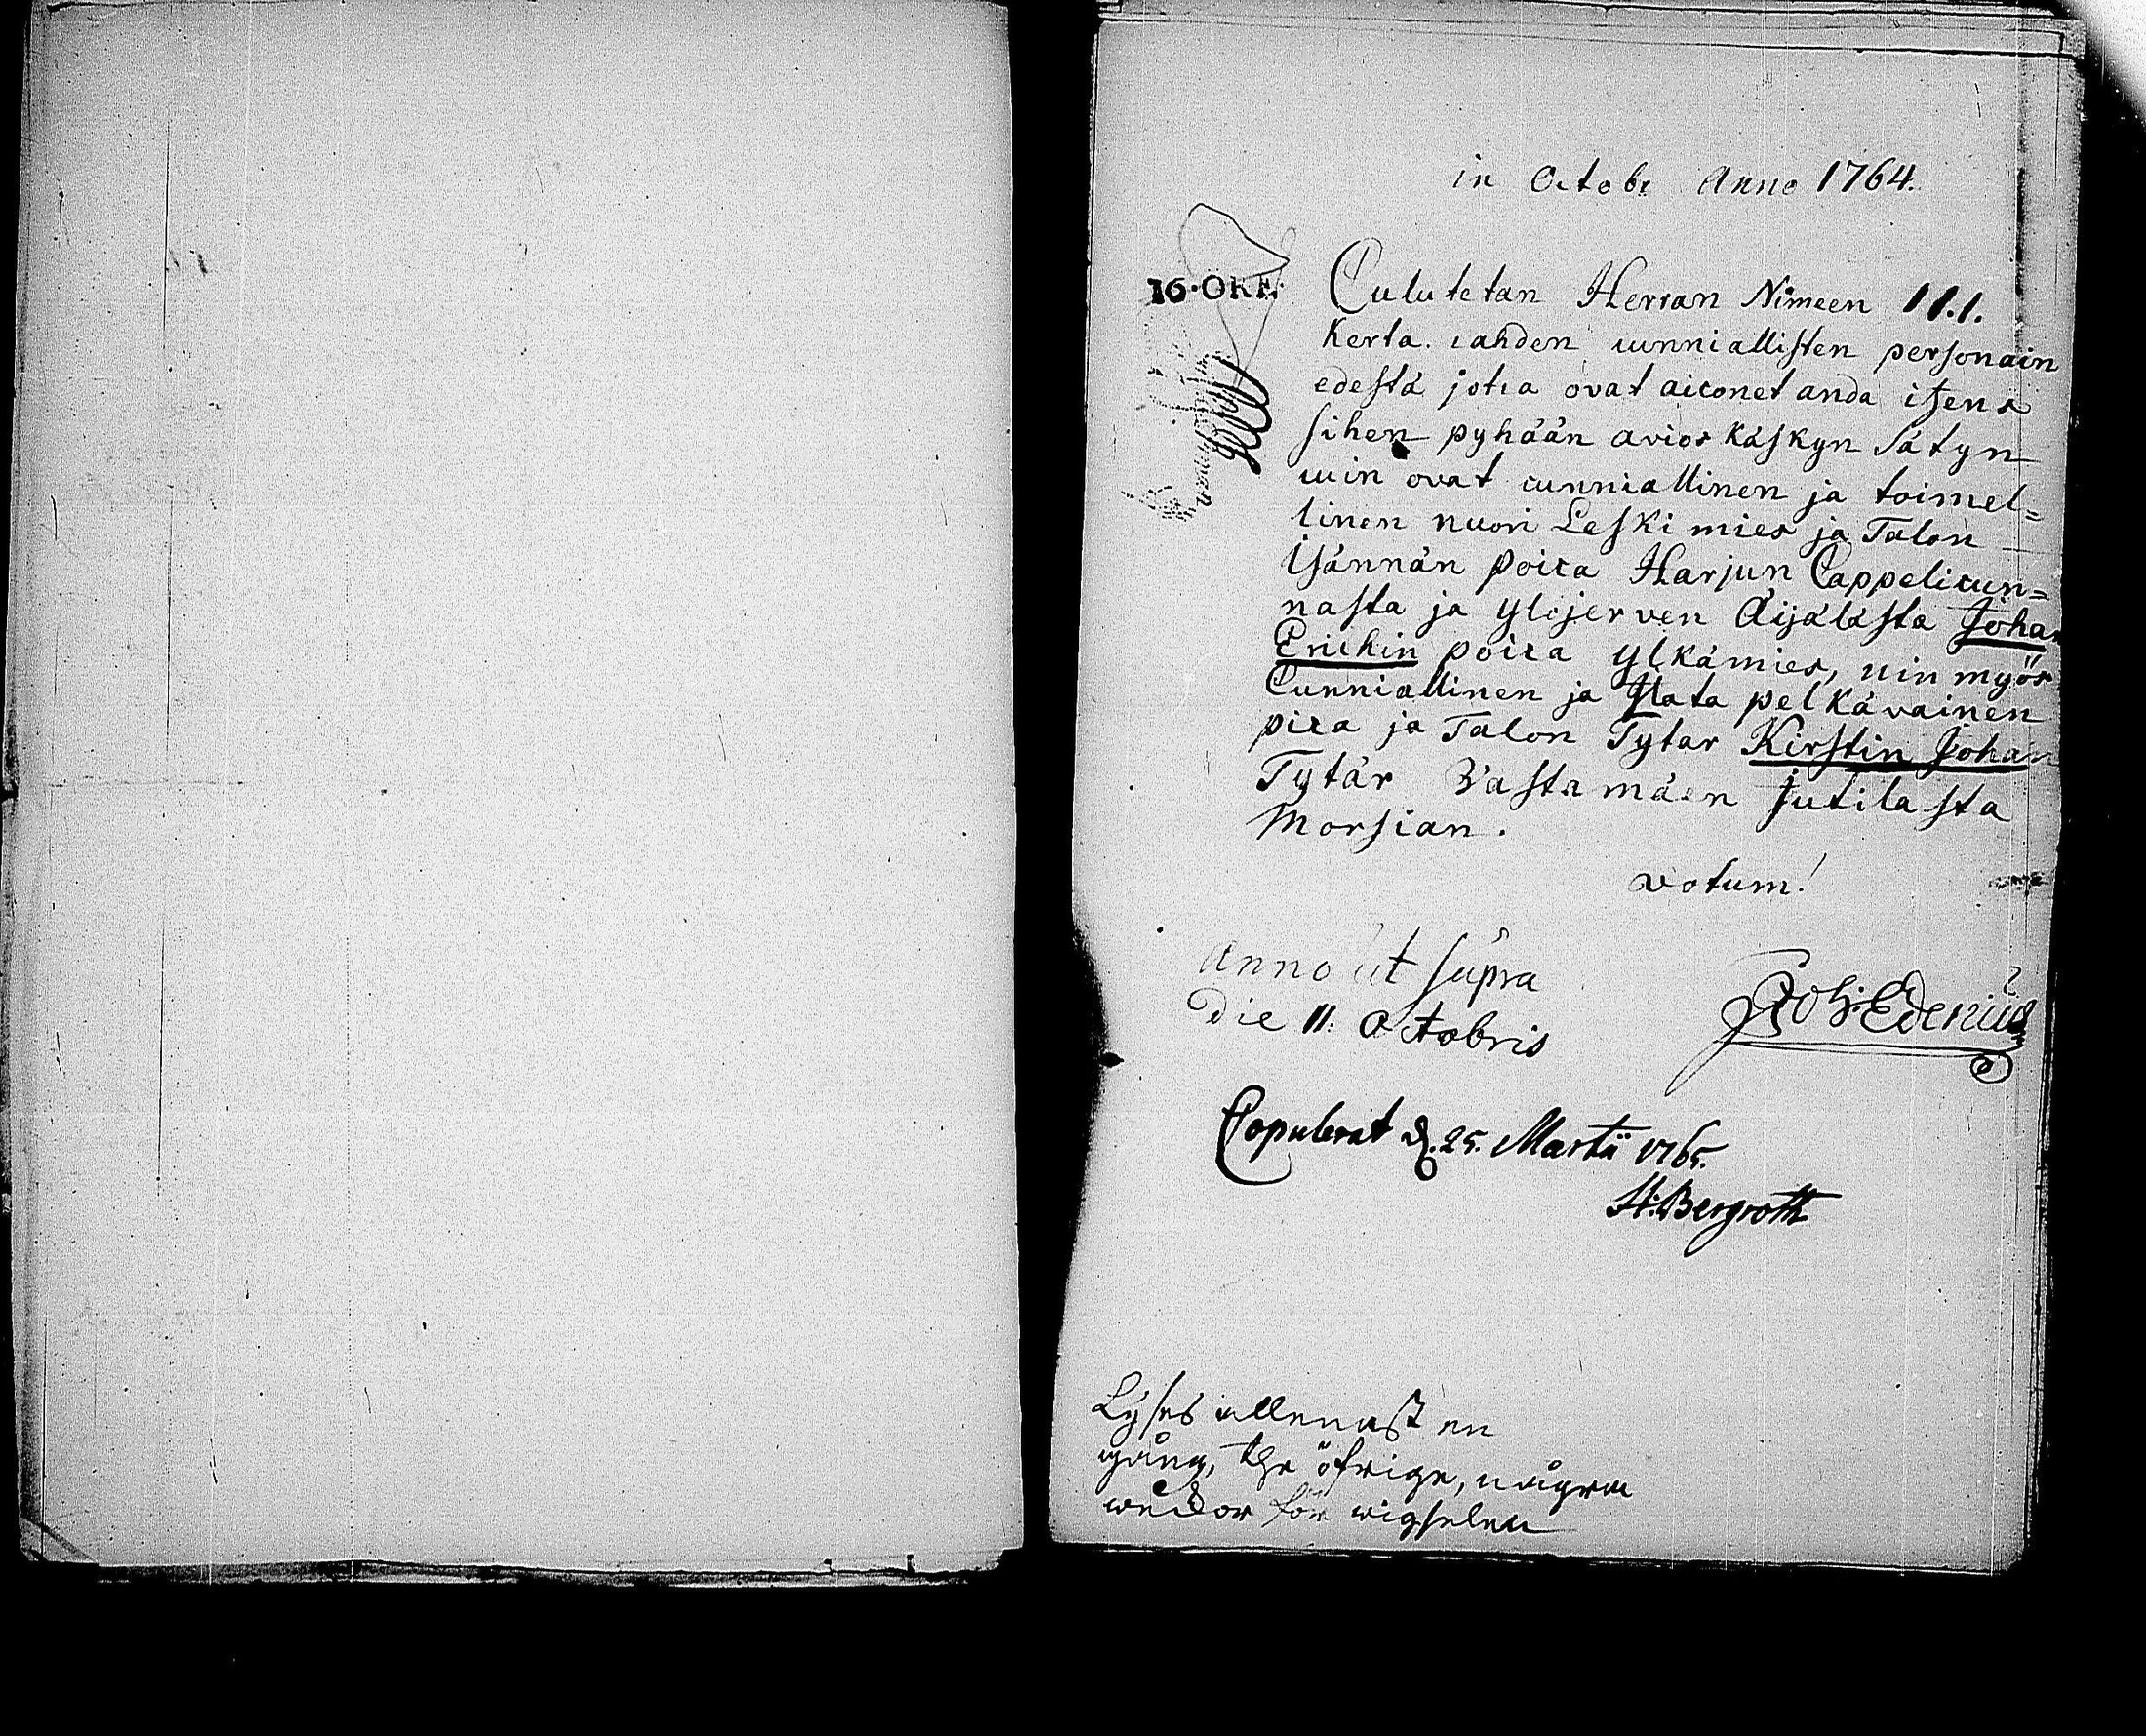 in Octobr Anno 1764.
16·ÖRE
Culutetan Herran Nimeen 1 1.1.
Kerta. cahden cunniallisten personain
edestä jotca ovat aiconet anda itzens
sihen pyhään avios käskyn sätyn
cuin ovat cunniallinen ja toimel=
linen nuori Leski mies ja Talon
isännän poica Harjun Cappelicun=
nasta ja ylijerven Äijälästä Johan
Erichin poica ylkämies, nin myös
Cunniallinen ja pelkäväinen
pica ja Talon Tytar Kirstin Johan
Tytär Vastamäen Jutilasta
Morsian.
votum!
Anno ut supra
Die 11. Octobris
Joh: Edenius
Copulerat d. 25. Martii 1765.
H: Bergroth
Lyses allenast en
gång, the öfrige, några
weckor för wigselen